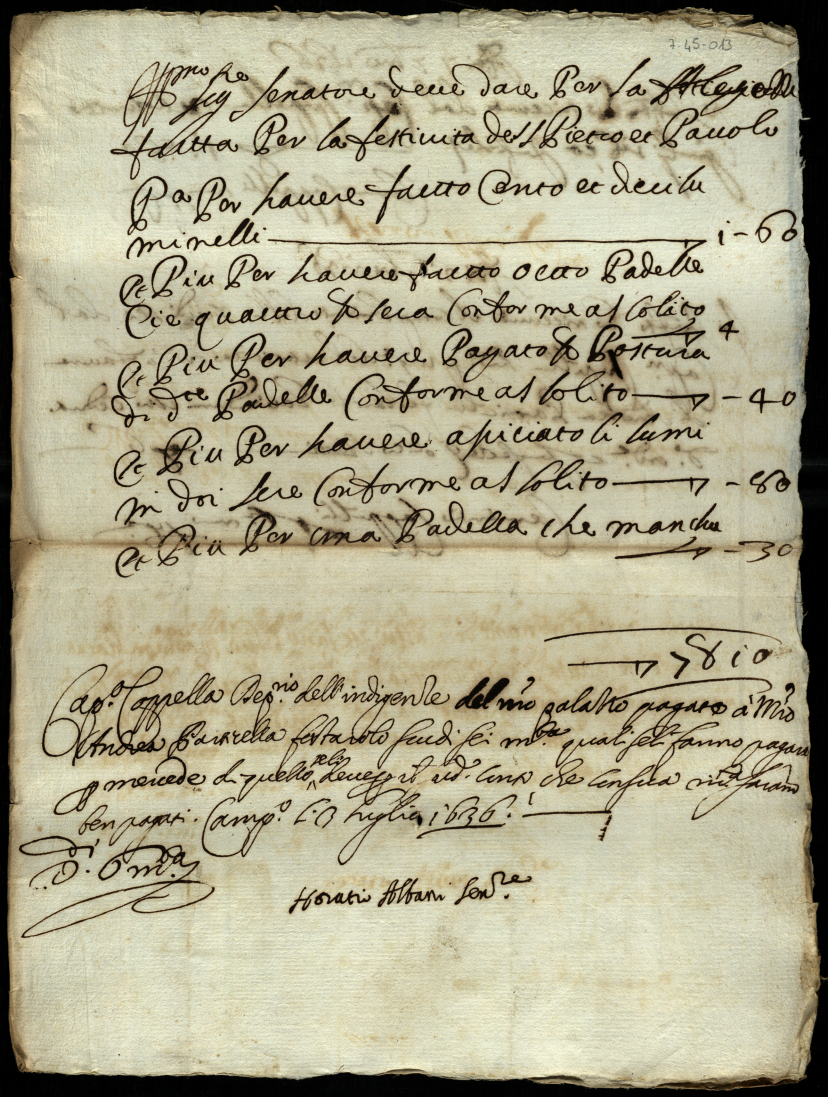 7-45-013
Ill.mo Sig.re Senatore deve dare Per la Alegrezza
fautta Per la festivita de SS Pietro et Pauolo
P.a Per havere fautto Cento et dieci lu
minelli 1-60
et Piu Per havere fautto octto Padelle
Cie quauttro P sera Conforme al solito
4
et Piu Per havere Pagato P Postura
di d.tte Padelle Conforme al solito - 40
et Piu Per havere apiciato li lumi
in doi sere Conforme al solito - 80
et Piu Per una Padella che mancha
- 30
7 10
Cap.o Cappella Dep.rio dell' del palazzo pagate à M.ro
Andrea fostarolo scudi sei m.ta quali se li fanno pagare
p mercede di quello che
ben pagati. Camp.o luglio 1636.
D. 6 m.ta
Horatio Albani Sen.re